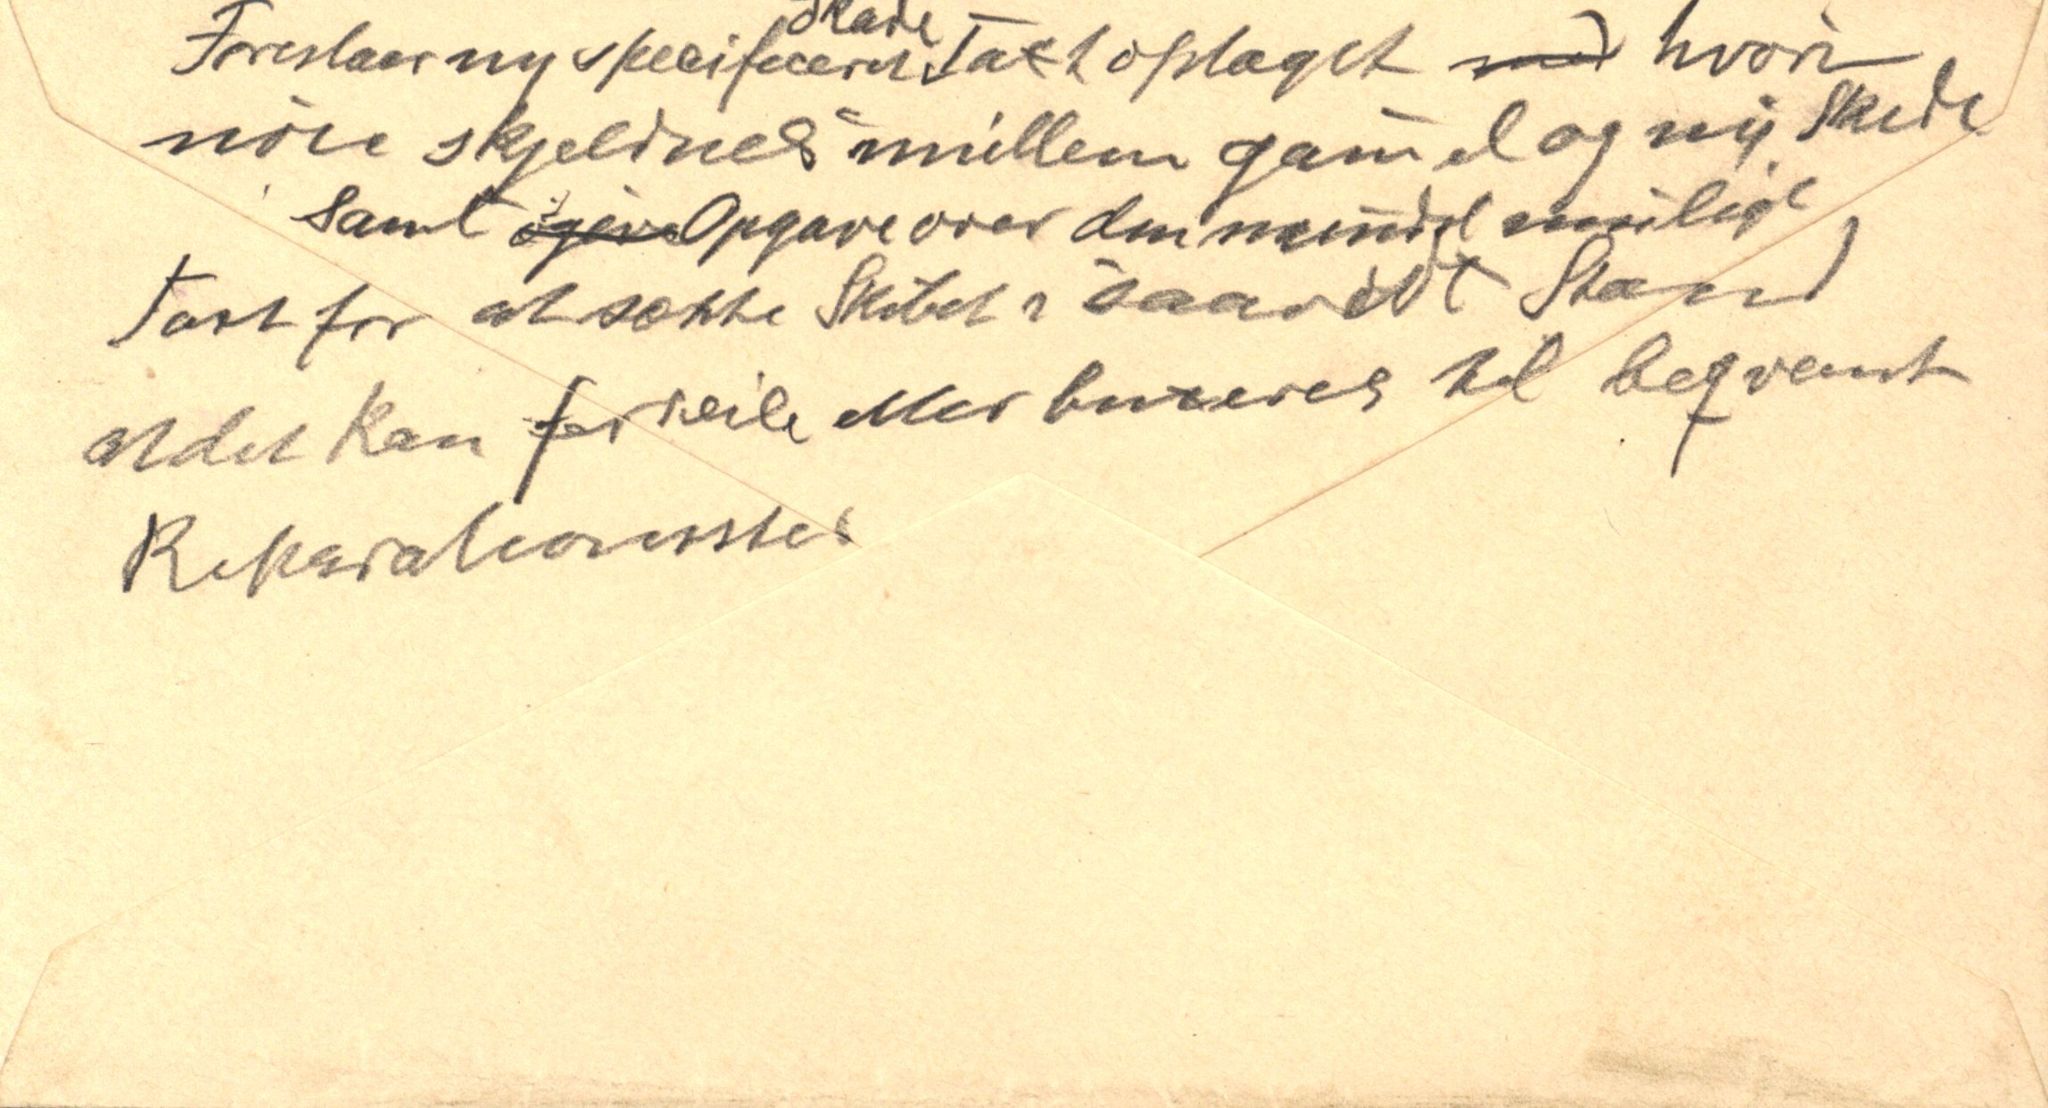 Skade
Foreslaaer ny specificeret Taxt optaget med hvori
nöie skjeldnes mellem gammel og ny Skade
samt Opgave over den mindst mulige
Taxt for at sætte Skibet i saavidt Stand
at det kan forseile eller buxeres til beqvemt
Reparationssted